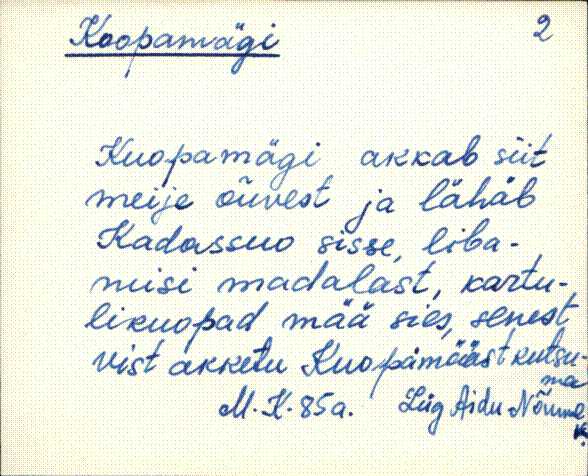 Koopamägi 2
Kuopamägi akkab siit
meije õuvest ja lähäb
Kadassuo sisse, liba-
misi madalast, kartu-
likuopad mää sies, senest
vist akketu Kuopämääst kutsu-
ma
M. K. 85a. Liig Aidu Nõmme
k.